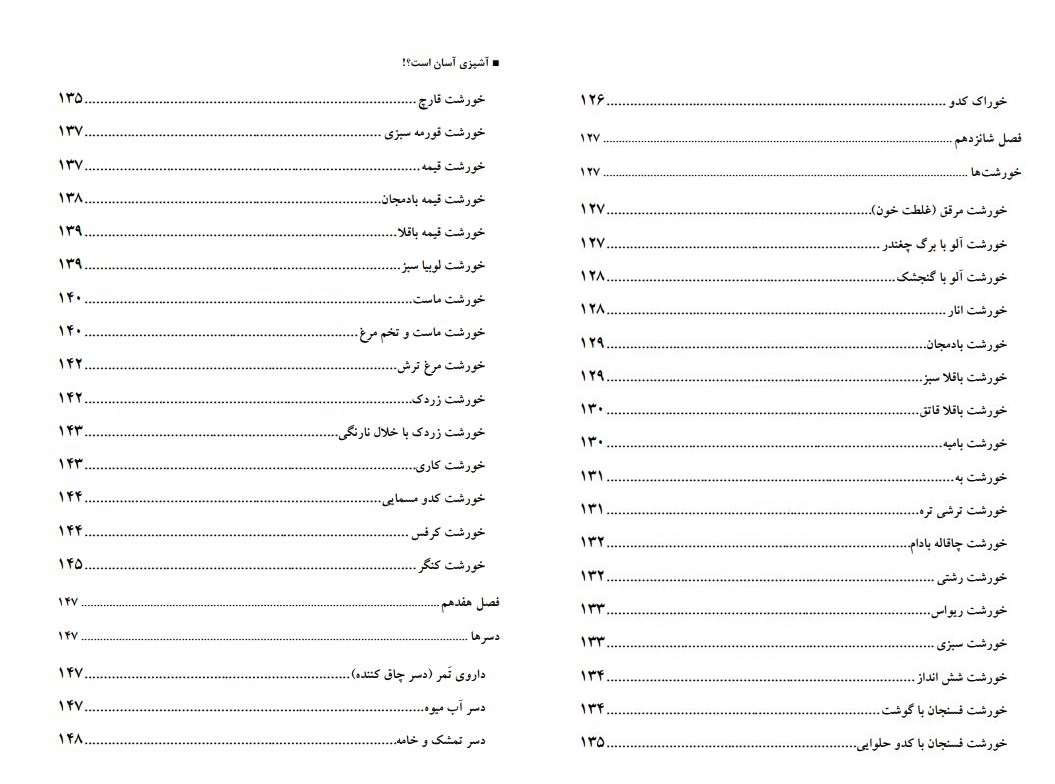 خوراک کدو ................ ۱۲۶
فصل شانزدهم ................ ۱۲۷
خورشت‌ها ................ ۱۲۷
خورشت مرقق (غلطت خون) ................ ۱۲۷
خورشت آلو با برگ چغندر ................ ۱۲۷
خورشت آلو با گنجشک ................ ۱۲۸
خورشت انار ................ ۱۲۸
خورشت بادمجان ................ ۱۲۹
خورشت باقلا سبز ................ ۱۲۹
خورشت باقلا قاتق ................ ۱۳۰
خورشت بامیه ................ ۱۳۰
خورشت به ................ ۱۳۱
خورشت ترشی تره ................ ۱۳۱
خورشت چاقاله بادام ................ ۱۳۲
خورشت رشتی ................ ۱۳۲
خورشت ریواس ................ ۱۳۳
خورشت سبزی ................ ۱۳۳
خورشت شش انداز ................ ۱۳۴
خورشت فسنجان با گوشت ................ ۱۳۴
خورشت فسنجان با کدو حلوایی ................ ۱۳۵
■ آشپزی آسان است؟!
خورشت قارچ ................ ۱۳۵
خورشت قورمه سبزی ................ ۱۳۷
خورشت قیمه ................ ۱۳۷
خورشت قیمه بادمجان ................ ۱۳۸
خورشت قیمه باقلا ................ ۱۳۹
خورشت لوبیا سبز ................ ۱۳۹
خورشت ماست ................ ۱۴۰
خورشت ماست و تخم مرغ ................ ۱۴۰
خورشت مرغ ترش ................ ۱۴۲
خورشت زردک ................ ۱۴۲
خورشت زردک با خلال نارنگی ................ ۱۴۳
خورشت کاری ................ ۱۴۳
خورشت کدو مسمایی ................ ۱۴۴
خورشت کرفس ................ ۱۴۴
خورشت کنگر ................ ۱۴۵
فصل هفدهم ................ ۱۴۷
دسرها ................ ۱۴۷
داروی تَمر (دسر چاق کننده) ................ ۱۴۷
دسر آب میوه ................ ۱۴۷
دسر تمشک و خامه ................ ۱۴۸